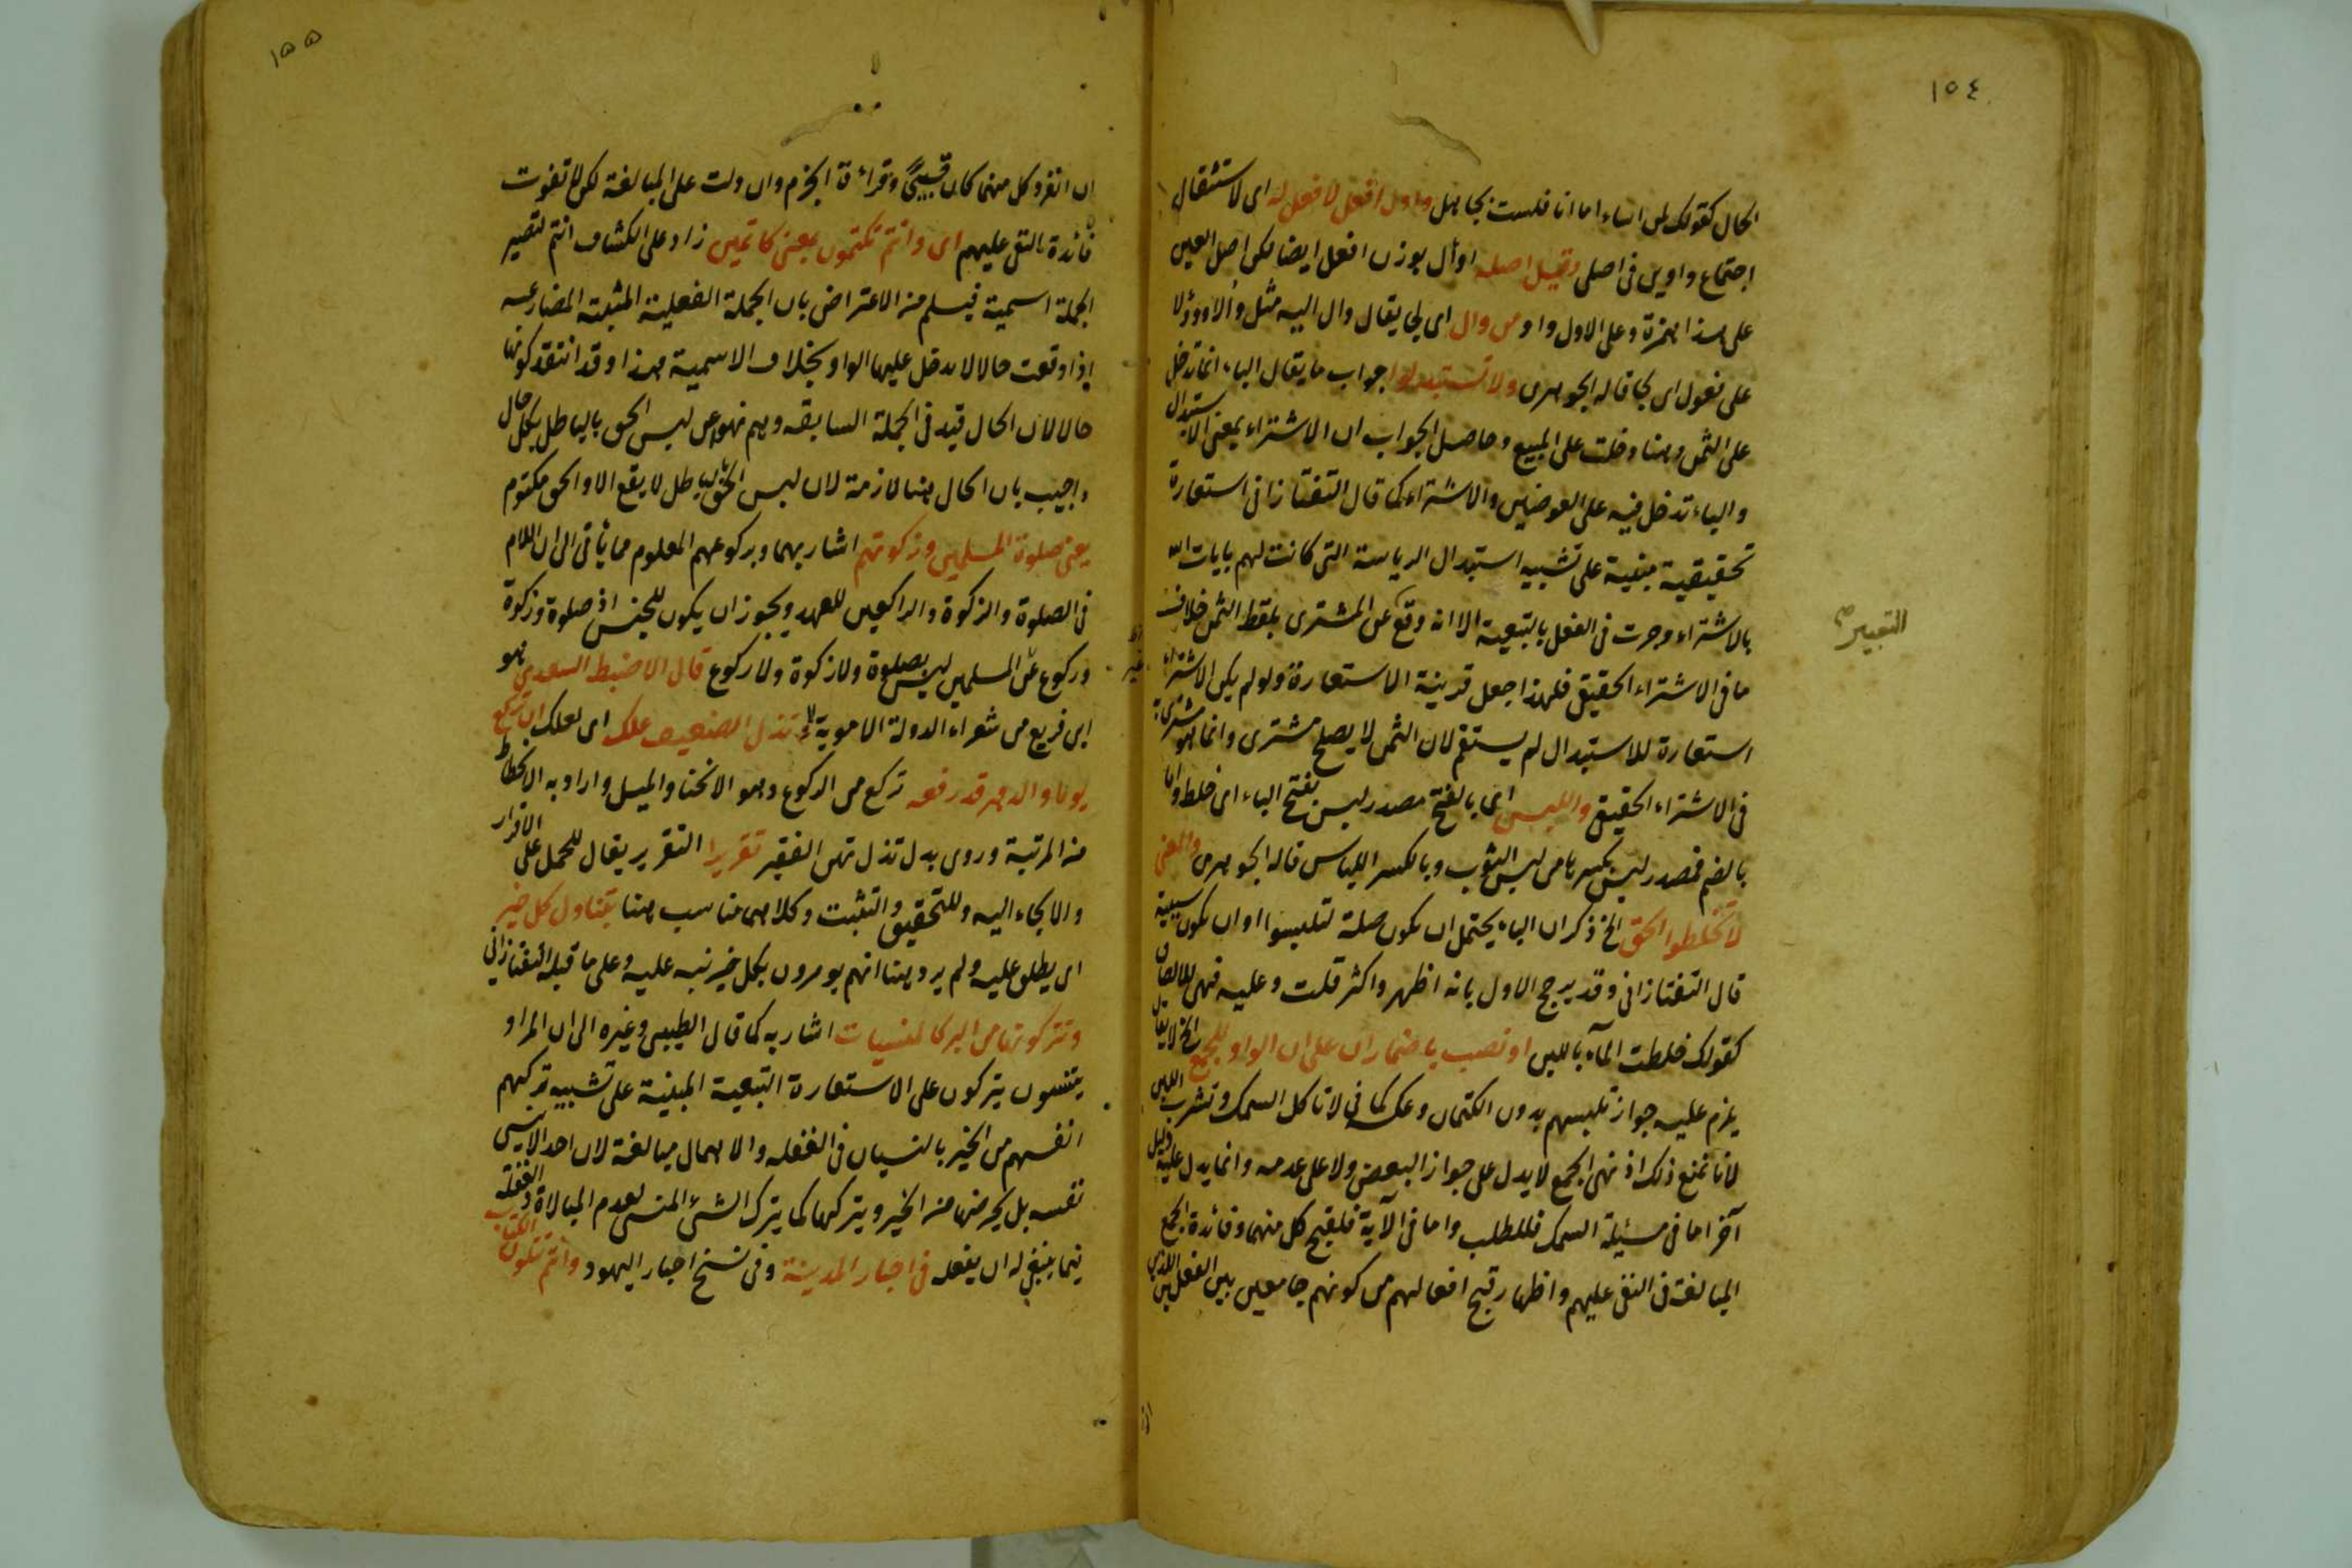 ١٥٤
الحال كقولك لمن اساء اما انا فلست بجاهل واول افعل لا فعل له اى لاستثقال
اجتماع واوين فى اصلى وقيل اصله اوأل بوزن افعل ايضا لكن اصل العين
على هذا همزة وعلى الاول واو من وال اى لجى يقال وال اليه مثل وألا وووٴلا
على فعول اى لجا قاله الجوهرى ولا تستبدلوا جواب ما يقال الباء انما تدخل
على الثمن وهنا دخلت على المبيع وحاصل الجواب ان الاشتراء بمعنى الاستبدال
والباء تدخل فيه على العوضين والاشتراء كما قال التفتازانى استعارة
تحقيقية مبنية على تشبيه استبدال الرياسة التى كانت لهم بايات الله
بالاشتراء وجرت فى الفعل بالتبعية الا انه وقع عن المشترى بلفظ الثمن خلاف
التعبير
ما فى الاشتراء الحقيقى فلهذا جعل قرينة الاستعارة ولو لم يكن الاشتراء
استعارة للاستبدال لم يستقم لان الثمن لا يصلح مشترى وانما هو مشترى به
فى الاشتراء الحقيقى واللبس اى بالفتح مصدر لبس بفتح الباء اى خلط واما
بالضم فمصدر لبس بكسرها من لبس الثوب وبالكسر اللباس قاله الجوهرى والمعنى
لا تخلطوا الحق الخ ذكر ان الباء يحتمل ان تكون صلة لتلبسوا او ان تكون سببية
قال التفتازانى وقد يرجح الاول بانه اظهر واكثر قلت وعليه فهى للالصاق
كقولك خلطت المآء باللبن او نصب باضمار ان على ان الواو للجمع الخ لا يقال
يلزم عليه جواز تلبسهم بدون الكتمان وعكسه كما فى لا تاكل السمك وتشرب اللبن
لانا نمنع ذلك اذ نهى الجمع لا يدل على جواز البعض ولا على عدمه وانما يدل عليه دليل
آخر اما فى مسئلة السمك فللطلب واما فى الآية فلقبح كل منهما وفائدة الجمع
المبالغة فى النفى عليهم واظهار قبح افعالهم من كونهم جامعين بين الفعلين اللذين
١٥٥
ان انفرد كل منهما كان قبيحًا وقراءة الجزم وان دلت على المبالغة لكن لا تفوت
فائدة النفى عليهم اى وانتم تكتمون بمعنى كاتمين زاد على الكشاف انتم لتصير
الجملة اسمية فيسلم من الاعتراض بان الجملة الفعلية المثبتة المضارعية
اذا وقعت حالا لا يدخل عليها الواو بخلاف الاسمية هذا وقد انتقد كونها
حالا لان الحال قيد فى الجملة السابقه وهم نهوا عن لبس الحق بالباطل بكل حال
واجيب بان الحال هنا لازمة لان لبس الحق بالباطل لا يقع الا والحق مكتوم
يعنى صلوة المسلمين وزكوتهم اشار بهما وبركوعهم المعلوم مما يأتى الى ان اللام
فى الصلوة والزكوة والراكعين للعهد ويجوز ان يكون للجنس اذ صلوة وزكوة
وركوع غير المسلمين ليس بصلوة ولا زكوة ولا ركوع قال الاضبط السعدى هو
ابن قريع من شعراء الدولة الاموية لا تذل الضعيف علك اى لعلك ان تركع
يوما والدهر قد رفعه تركع من الركوع وهو الانحنا والميل واراد به الانحطاط
من المرتبة وروى بدل تذل تهن الفقير تقريرا التقرير يقال للحمل على الاقرار
والالجاء اليه وللتحقيق والتثبت وكلاهما مناسب هنا يتناول كل خير
اى يطلق عليه ولم يرد هنا انهم يومرون بكل خير نبه عليه وعلى ما قبله التفتازانى
وتتركونها من البر كالمنسيات اشار به كما قال الطيبى وغيره الى ان المراد
بتنسون يتركون على الاستعارة التبعية المبنية على تشبيه تركهم
انفسهم من الخير بالنسيان فى الغفله والاهمال مبالغة لان احدا لا ينسى
نفسه بل يحرمها من الخير ويتركها كما يترك الشئ المنسى لعدم المبالاة والغفلة
فيما ينبغى له ان يفعله فى احبار المدينة وفى نسخ احبار اليهود وانتم تتلون الكتاب